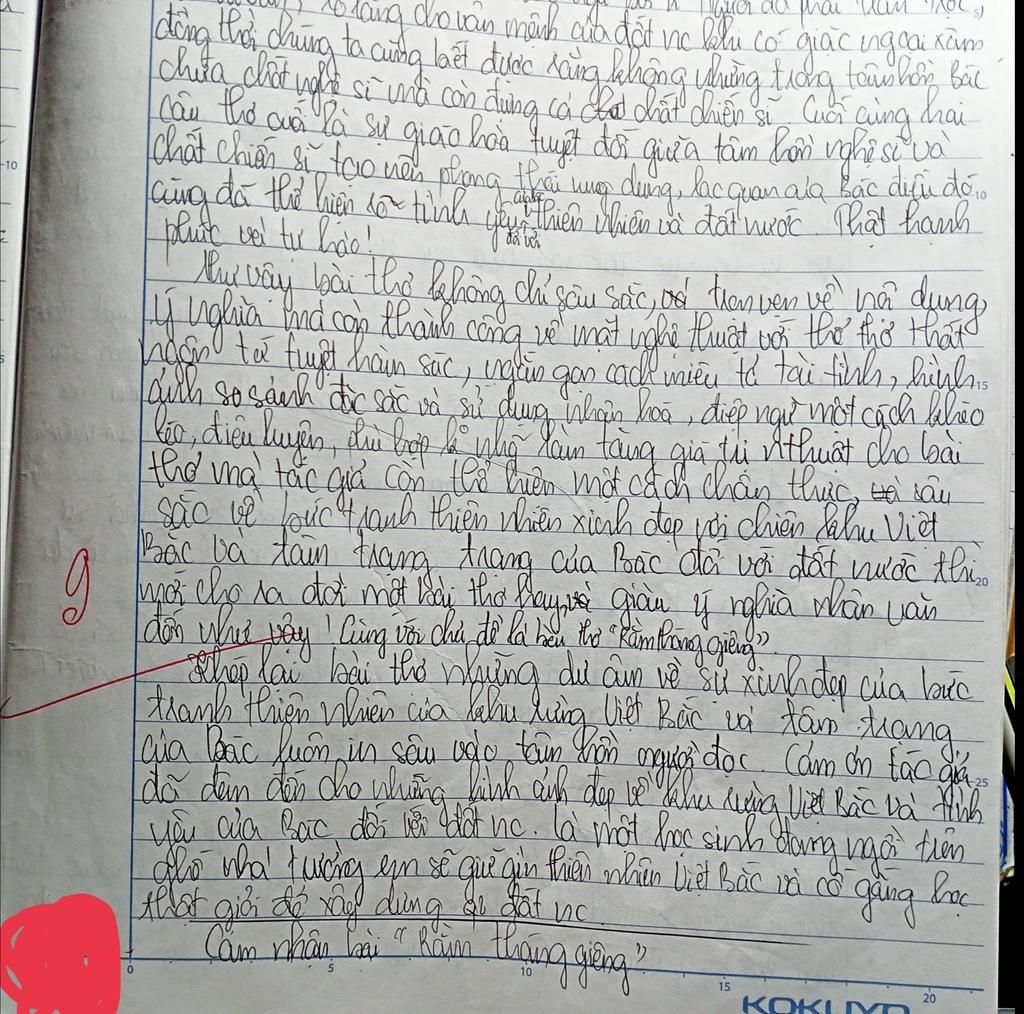 lo lắng cho vận mệnh của đất nc khi có giặc ngoại xâm
đồng thời chúng ta cũng biết được rằng không những trong tâm hồn Bác
chứa chất nghệ sĩ mà còn đựng cả chất chiến sĩ. Cuối cùng hai
câu thơ cuối là sự giao hoà tuyệt đối giữa tâm hồn nghệ sĩ và
chất chiến sĩ tạo nên phong thái ung dung, lạc quan của Bác điều đó
cũng đã thể hiện rõ tình yêu của Bác đối với thiên nhiên và đất nước. Thật hạnh
phúc với tự hào!
Như vậy bài thơ không chỉ sâu sắc, trọn vẹn về nội dung,
ý nghĩa mà còn thành công về mặt nghệ thuật với thể thơ thất
ngôn tứ tuyệt hàm súc, ngắn gọn cách miêu tả tài tình, hình
ảnh so sánh đặc sắc và sử dụng nhân hoá, điệp ngữ một cách khéo
léo, điêu luyện, phù hợp k nhữg làm tăng giá trị nthuật cho bài
thơ mà tác giả còn thể hiện một cách chân thực, sâu
sắc về bức tranh thiên nhiên xinh đẹp với chiến khu Việt
Bắc và tâm trạng trạng của Bác đối với đất nước thì
mới cho ra đời một bài thơ hay, giàu ý nghĩa nhân văn
đến như vậy! Cùng với chủ đề là bài thơ "Rằm tháng giêng".
9
Khép lại bài thơ những dư âm về sự xinh đẹp của bức
tranh thiên nhiên của khu rừng Việt Bắc và tâm trạng
của Bác luôn in sâu vào tâm hồn người đọc. Cảm ơn tác giả
đã đem đến cho những hình ảnh đẹp về khu rừng Việt Bắc và tình
yêu của Bác đối với đất nc. Là một học sinh đang ngồi trên
ghế nhà trường em sẽ giữ gìn thiên nhiên Việt Bắc và cố gắng học
thật giỏi để xây dựng đất nc
Cảm nhận bài "Rằm tháng giêng"
0 5 10 15 20
KOKUYO